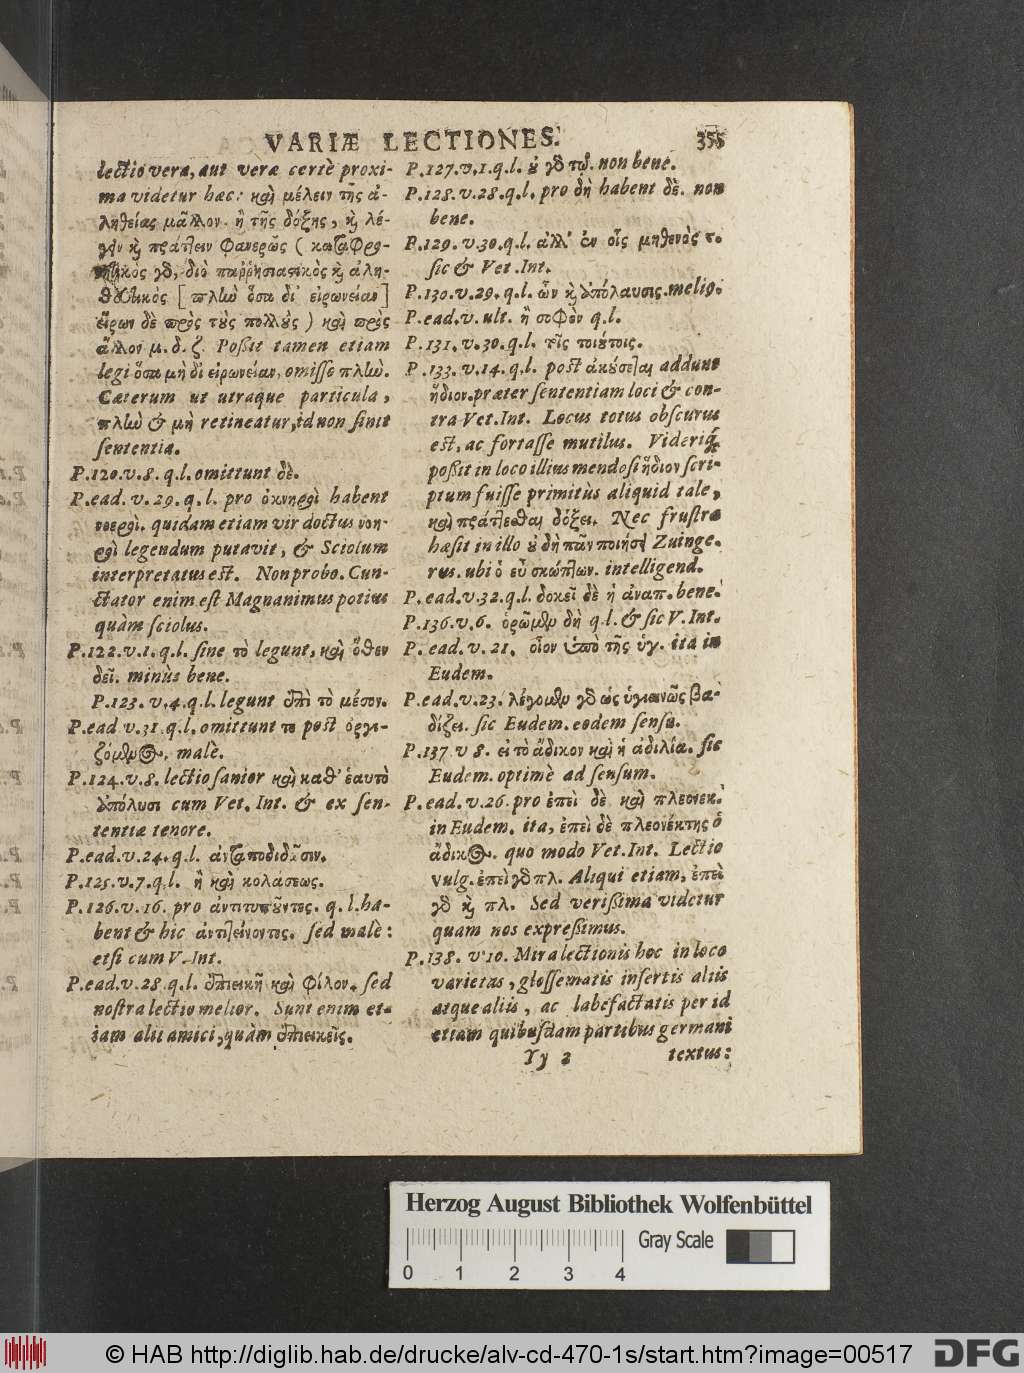 VARIÆ LECTIONES. 355
lectio vera, aut veræ certè proxi-
ma videtur hæc: καὶ μέλειν τῆς ἀ-
ληθείας μᾶλλον ἢ τῆς δόξης, καὶ λέ-
γειν καὶ πράττειν φανερῶς (καταφρο-
νητικὸς γὰρ, διὸ παῤῥησιαστικὸς καὶ ἀλη-
θευτικὸς [πλὼ ὅσα δι᾽ εἰρωνείαν]
εἴρων δὲ πρὸς τοὺς πολλοὺς) καὶ πρὸς
ἄλλον μ. δ. ζ. Poßit tamen etiam
legi ὅσα μὴ δι εἰρωνείαν, omisso πλὼ.
Cæterum ut utraque particula,
πλὼ & μὴ retineatur, id non sinit
sententia.
P.120.v.8. q.l. omittunt δὲ.
P.ead. v. 29. q. l. pro ὀκνηροὶ habent
νοεροὶ. quidam etiam vir doctus νοη-
ροὶ legendum putavit, & Sciolum
interpretatus est. Non probo. Cun-
ctator enim est Magnanimus potius
quàm sciolus.
P.122.v.1. q.l. sine τὸ legunt, καὶ ὅθεν
δεῖ. minùs bene.
P.123. v.4. q.l. legunt ἐπὶ τὸ μέσον.
P.ead v.31 q.l. omittunt τε post ὀργι-
ζόμενος. malè.
P.124.v.8. lectio sanior καὶ καθ᾽ ἑαυτὸ
ἀπόλυσι cum Vet. Int. & ex sen-
tentiæ tenore.
P.ead.v.24. q.l. ἀνταποδιδῶσιν.
P.125.v.7.q.l. ἢ καὶ κολάσεως.
P.126.v.16. pro ἀντιτυποῦντες. q.l.ha-
bent & hic ἀντιτείνοντες. sed malè:
etsi cum V. Int.
P.ead.v.28. q.l. ἐπιεικῆ καὶ φίλον. sed
nostra lectio melior. Sunt enim et-
iam alii amici, quàm ἐπιεικεῖς.
P.127.v.1.q.l. οὐ γὰρ τῷ. non bene.
P.128.v.28.q.l. pro δὴ habent δὲ. non
bene.
P.129.v.30.q.l. ἀλλ᾽ ἐν οἷς μηθενὸς τ.
sic & Vet.Int.
P.130.v.29. q.l. ὧν καὶ ἀπόλαυσις. meliꝰ.
P.ead.v. ult. ἢ σοφὸν q.l.
P.131.v.30.q.l. τοῖς τοιούτοις.
P.133.v.14.q.l. post ἀκούσεται addunt
ἥδιον. præter sententiam loci & con-
tra Vet.Int. Locus totus obscurus
est, ac fortasse mutilus. Viderique
poßit in loco illius mendosi ἥδιον scri-
ptum fuisse primitùs aliquid tale,
καὶ πράττεσθαι δόξει. Nec frustra
hæsit in illo οὐ δὴ πᾶν ποιήσει Zuinge-
rus. ubi ὁ εὖ σκώπτων. intelligend.
P. ead.v.32.q.l. δοκεῖ δὲ ἡ ἀναπ. bene.
P.136.v.6. ὁρῶμεν δὴ q.l. & sic V.Int.
P. ead.v. 21. οἷον ἀπὸ τῆς ὑγ. ita in
Eudem.
P.ead.v.23. λέγομεν γὰρ ὡς ὑγιεινῶς βα-
δίζει. sic Eudem. eodem sensu.
P.137.v 8. εἰ τὸ ἄδικον καὶ ἡ ἀδικία. sic
Eudem. optimè ad sensum.
P. ead.v.26. pro ἐπεὶ δὲ καὶ πλεονεκ.
in Eudem. ita, ἐπεὶ δὲ πλεονέκτης ὁ
ἄδικος. quo modo Vet.Int. Lectio
vulg. ἐπεὶ γὰρ πλ. Aliqui etiam, ἐπεὶ
γὰρ καὶ πλ. Sed verißima videtur
quam nos expreßimus.
P.138. v 10. Mira lectionis hoc in loco
varietas, glossematis insertis aliis
atque aliis, ac labefactatis per id
etiam quibusdam partibus germani
Yy 2 textus:
Herzog August Bibliothek Wolfenbüttel
Gray Scale
0 1 2 3 4
© HAB http://diglib.hab.de/drucke/alv-cd-470-1s/start.htm?image=00517 DFG